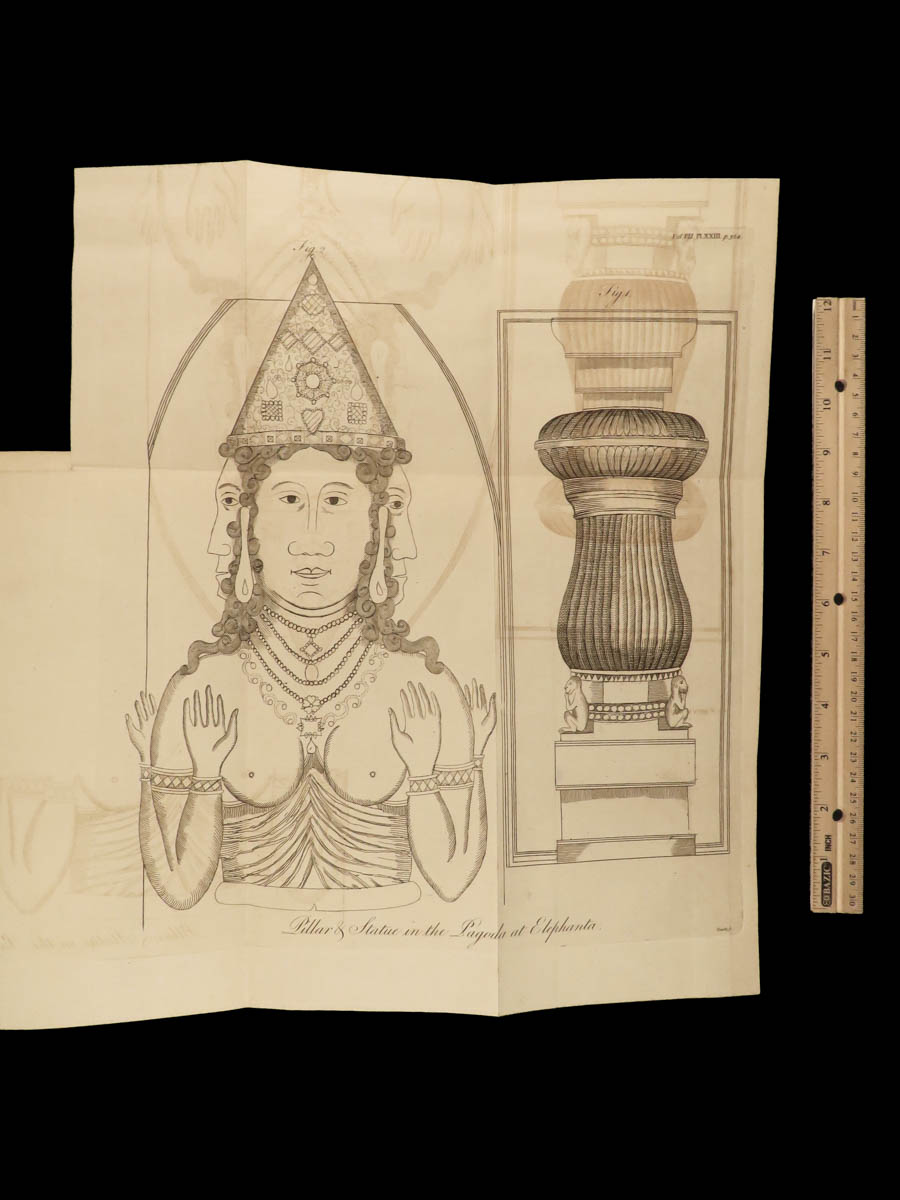 Vol VII Pl. XXIII p. 
Fig. 2.
Fig. 1.
Pillar & Statue in the Pagoda at Elephanta.
12
11
10
9
8
7
6
5
4
3
2
1
INCH
BAZIC
1
2
3
4
5
6
7
8
9
10
11
12
13
14
15
16
17
18
19
20
21
22
23
24
25
26
27
28
29
30